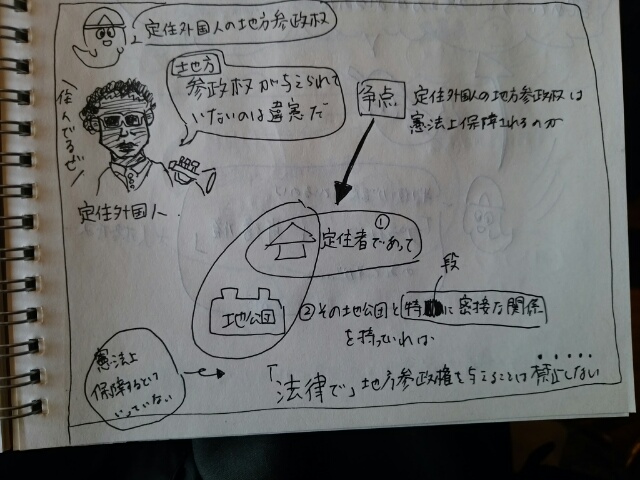 定住外国人の地方参政权
地方
参政权が与えられて
いないのは違憲だ
住んでるぜ
定住外国人
争点
定住外国人の地方参政权は
憲法上保障されるのか
①
定住者であって
段
地公団
②その地公団と特に密接な関係
を持っていれば
憲法上
保障するとは
いっていない
「法律で」地方参政権を与えることは禁止しない